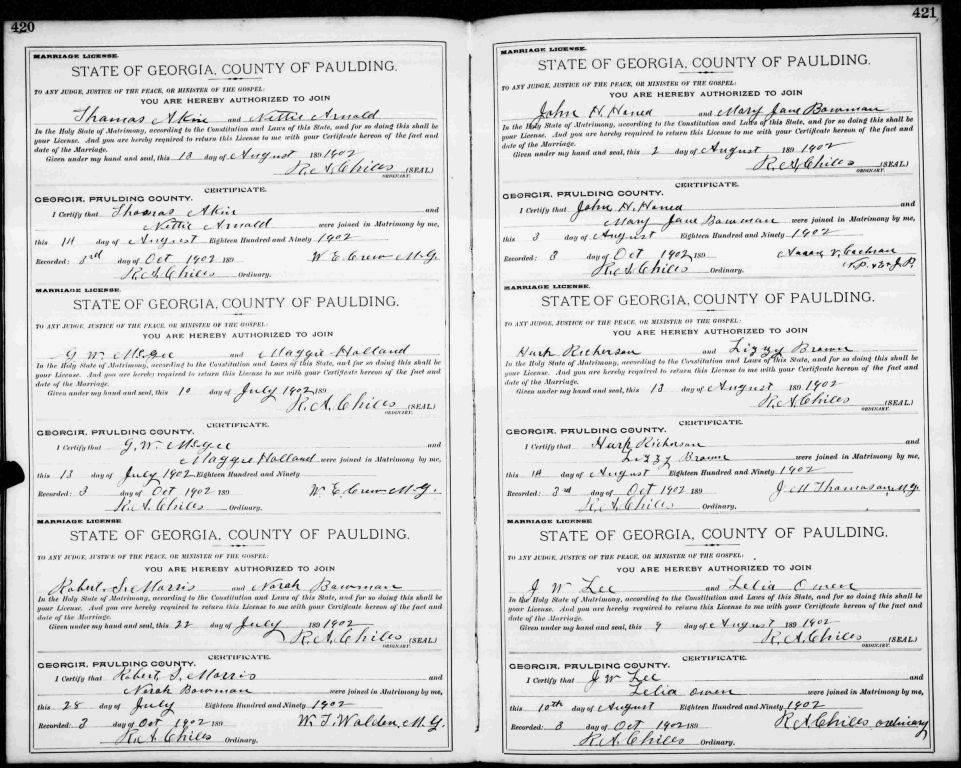 420
MARRIAGE LICENSE.
STATE OF GEORGIA, COUNTY OF PAULDING.
TO ANY JUDGE, JUSTICE OF THE PEACE, OR MINISTER OF THE GOSPEL:
YOU ARE HEREBY AUTHORIZED TO JOIN
Thomas Akin and Nettie Arnold
In the Holy State of Matrimony, according to the Constitution and Laws of this State, and for so doing this shall be
your License. And you are hereby required to return this License to me with your Certificate hereof of the fact and
date of the Marriage.
Given under my hand and seal, this 13 day of August 189 1902
R. A. Chiles (SEAL)
ORDINARY.
CERTIFICATE.
GEORGIA, PAULDING COUNTY.
I Certify that Thomas Akin and
Nettie Arnold were joined in Matrimony by me,
this 14 day of August Eighteen Hundred and Ninety 1902
Recorded: 3rd day of Oct 1902 189 W. E. Crew M.G.
R. A. Chiles Ordinary.
MARRIAGE LICENSE.
STATE OF GEORGIA, COUNTY OF PAULDING.
TO ANY JUDGE, JUSTICE OF THE PEACE, OR MINISTER OF THE GOSPEL:
YOU ARE HEREBY AUTHORIZED TO JOIN
G. W. McGee and Maggie Holland
In the Holy State of Matrimony, according to the Constitution and Laws of this State, and for so doing this shall be
your License. And you are hereby required to return this License to me with your Certificate hereof of the fact and
date of the Marriage.
Given under my hand and seal, this 10 day of July 1902 189
R. A. Chiles (SEAL)
ORDINARY.
CERTIFICATE.
GEORGIA, PAULDING COUNTY.
I Certify that G. W. McGee and
Maggie Holland were joined in Matrimony by me,
this 13 day of July 1902 Eighteen Hundred and Ninety
Recorded: 3 day of Oct 1902 189 W. E. Crew M.G.
R. A. Chiles Ordinary.
MARRIAGE LICENSE.
STATE OF GEORGIA, COUNTY OF PAULDING.
TO ANY JUDGE, JUSTICE OF THE PEACE, OR MINISTER OF THE GOSPEL:
YOU ARE HEREBY AUTHORIZED TO JOIN
Robert S. Morris and Norah Bowman
In the Holy State of Matrimony, according to the Constitution and Laws of this State, and for so doing this shall be
your License. And you are hereby required to return this License to me with your Certificate hereof of the fact and
date of the Marriage.
Given under my hand and seal, this 22 day of July 189 1902
R. A. Chiles (SEAL)
ORDINARY.
CERTIFICATE.
GEORGIA, PAULDING COUNTY.
I Certify that Robert S. Morris and
Norah Bowman were joined in Matrimony by me,
this 28 day of July Eighteen Hundred and Ninety 1902
Recorded: 3 day of Oct 1902 189 W. T. Walden, M.G.
R. A. Chiles Ordinary.
421
MARRIAGE LICENSE.
STATE OF GEORGIA, COUNTY OF PAULDING.
TO ANY JUDGE, JUSTICE OF THE PEACE, OR MINISTER OF THE GOSPEL:
YOU ARE HEREBY AUTHORIZED TO JOIN
John H. and Mary Jane Bowman
In the Holy State of Matrimony, according to the Constitution and Laws of this State, and for so doing this shall be
your License. And you are hereby required to return this License to me with your Certificate hereof of the fact and
date of the Marriage.
Given under my hand and seal, this 2 day of August 189 1902
R. A. Chiles (SEAL)
ORDINARY.
CERTIFICATE.
GEORGIA, PAULDING COUNTY.
I Certify that John H. and
Mary Jane Bowman were joined in Matrimony by me,
this 3 day of August Eighteen Hundred and Ninety 1902
Recorded: 3 day of Oct 1902 189 V. Cochran
R. A. Chiles Ordinary. J.P.
MARRIAGE LICENSE.
STATE OF GEORGIA, COUNTY OF PAULDING.
TO ANY JUDGE, JUSTICE OF THE PEACE, OR MINISTER OF THE GOSPEL:
YOU ARE HEREBY AUTHORIZED TO JOIN
Richerson and Lizzy Brown
In the Holy State of Matrimony, according to the Constitution and Laws of this State, and for so doing this shall be
your License. And you are hereby required to return this License to me with your Certificate hereof of the fact and
date of the Marriage.
Given under my hand and seal, this 13 day of August 189 1902
R. A. Chiles (SEAL)
ORDINARY.
CERTIFICATE.
GEORGIA, PAULDING COUNTY.
I Certify that Richerson and
Lizzy Brown were joined in Matrimony by me,
this 14 day of August Eighteen Hundred and Ninety 1902
Recorded: 3rd day of Oct 1902 189 J. M. Thomason, M.G.
R. A. Chiles Ordinary.
MARRIAGE LICENSE.
STATE OF GEORGIA, COUNTY OF PAULDING.
TO ANY JUDGE, JUSTICE OF THE PEACE, OR MINISTER OF THE GOSPEL:
YOU ARE HEREBY AUTHORIZED TO JOIN
J. W. Lee and Lelia Owen
In the Holy State of Matrimony, according to the Constitution and Laws of this State, and for so doing this shall be
your License. And you are hereby required to return this License to me with your Certificate hereof of the fact and
date of the Marriage.
Given under my hand and seal, this 9 day of August 189 1902
R. A. Chiles (SEAL)
ORDINARY.
CERTIFICATE.
GEORGIA, PAULDING COUNTY.
I Certify that J. W. Lee and
Lelia Owen were joined in Matrimony by me,
this 10th day of August Eighteen Hundred and Ninety 1902
Recorded: 3 day of Oct 1902 189 R. A. Chiles ordinary
R. A. Chiles Ordinary.